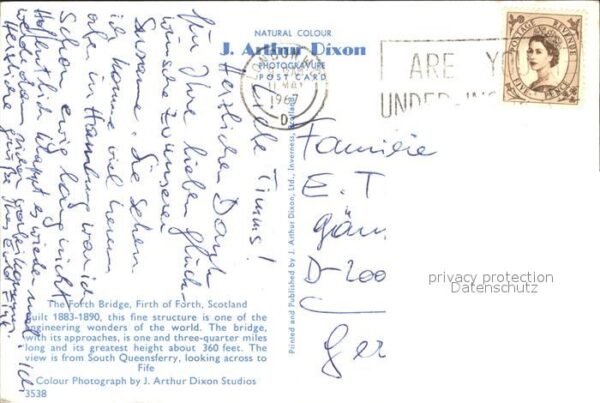 NATURAL COLOUR
J. Arthur Dixon
PHOTOGRAVURE
POST CARD
1967
D
ARE
UNDER-
POSTAGE
REVENUE
Liebe Timms!
Herzlichen Dank
für Ihre lieben Glück
wünsche zu unserer
Susanne. Sie sehen
ich komme viel herum
aber in Hamburg war ich
Schon ewig lang nicht
Hoffentlich klappt es wieder mal. Ich
würde dann vorbeikommen.
Herzliche Grüße Ihre
Familie
E. T
D-200
Ger
privacy protection
Datenschutz
Printed and Published by J. Arthur Dixon, Ltd., Inverness, Scotland.
The Forth Bridge, Firth of Forth, Scotland
Built 1883-1890, this fine structure is one of the
engineering wonders of the world. The bridge,
with its approaches, is one and three-quarter miles
long and its greatest height about 360 feet. The
view is from South Queensferry, looking across to
Fife
Colour Photograph by J. Arthur Dixon Studios
3538